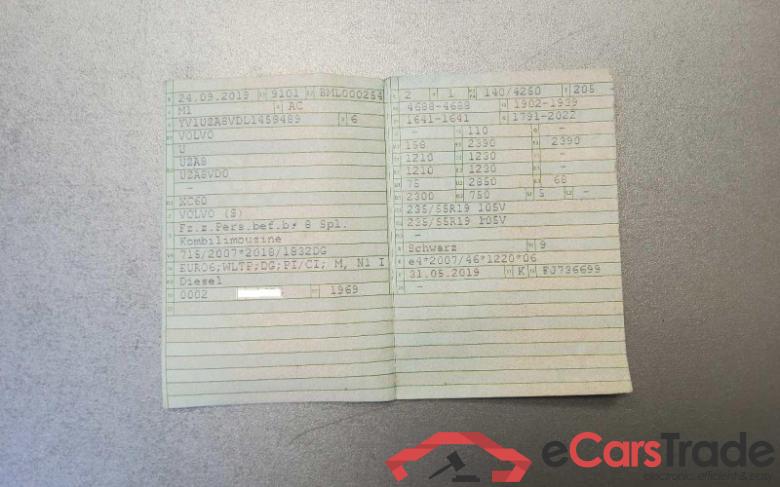 24.09.2019 9101 BML000254
M1 AC
YV1UZA8VDL1459489 6
VOLVO
U
UZA8
UZA8VD0
-
XC60
VOLVO (S)
Fz.z.Pers.bef.b. 8 Spl.
Kombilimousine
715/2007*2018/1832DG
EURO6;WLTP;DG;PI/CI; M, N1 I
Diesel
0002 1969
2 1 140/4250 205 -
4688-4688 1902-1999
1641-1641 1791-2022
- 110 - -
158 2390 2390
1210 1230 -
1210 1230 -
75 2850 68
2300 750 5 -
235/55R19 105V
235/55R19 105V
-
Schwarz 9
e4*2007/46*1220*06
31.05.2019 K FJ736699
-
eCarsTrade
electronic, efficient & easy